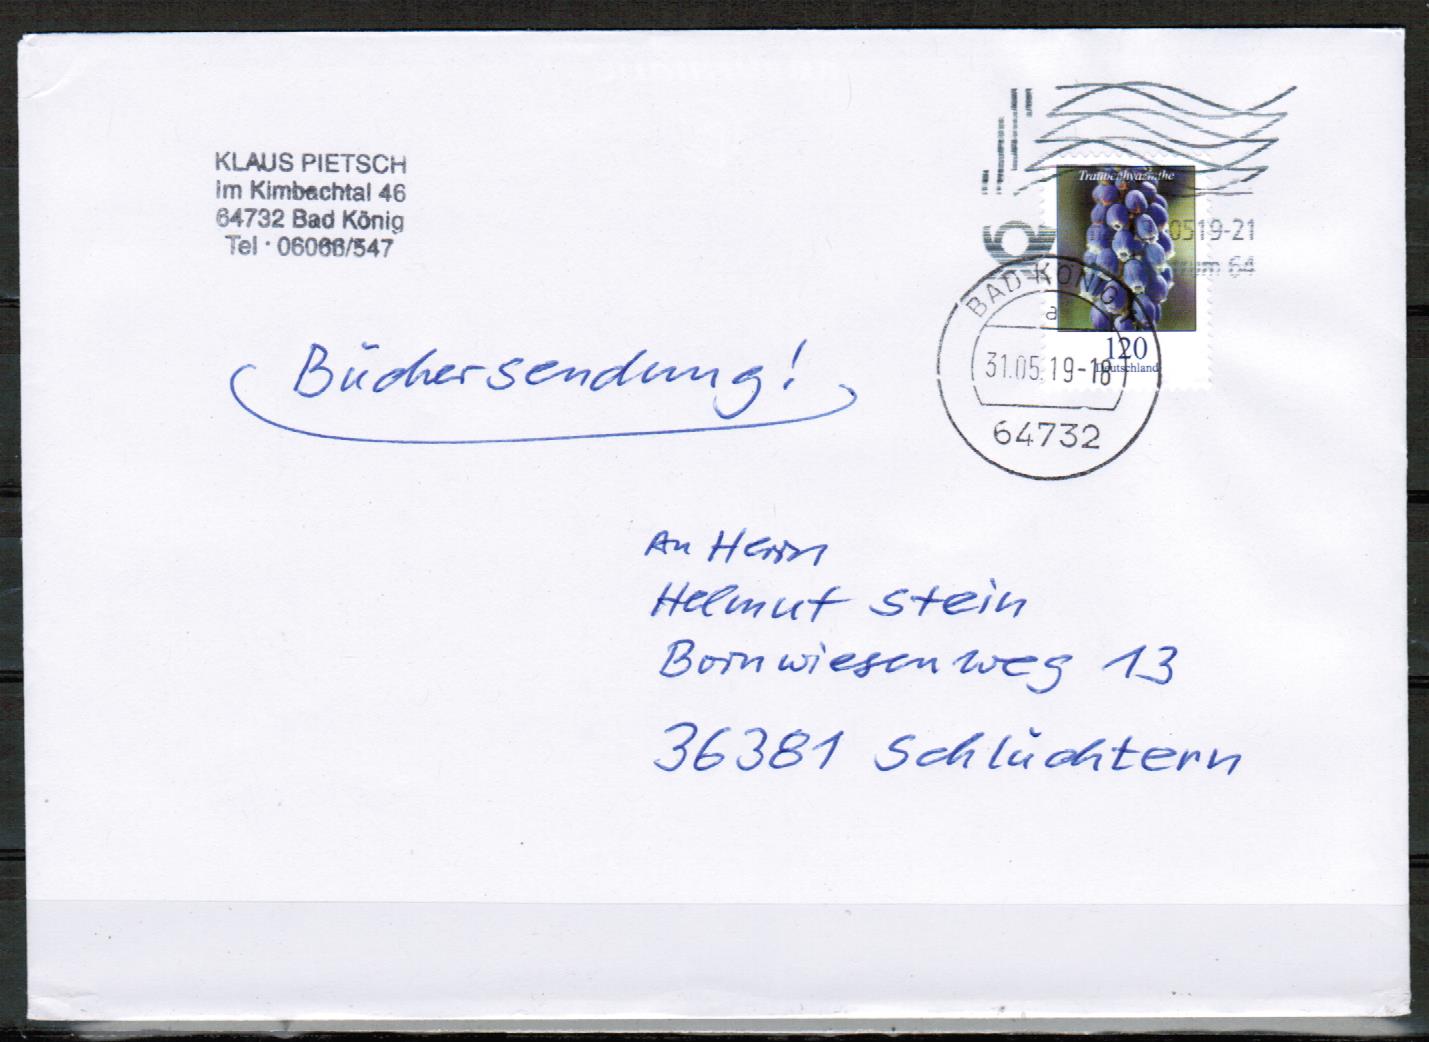 KLAUS PIETSCH
im Kimbachtal 46
64732 Bad König
Tel · 06066/547
Traubenhyazinthe
0519-21
64
BAD KÖNIG
a
120
Deutschland
31.05.19-18
64732
Büchersendung!
An Herrn
Helmut Stein
Bornwiesenweg 13
36381 Schlüchtern